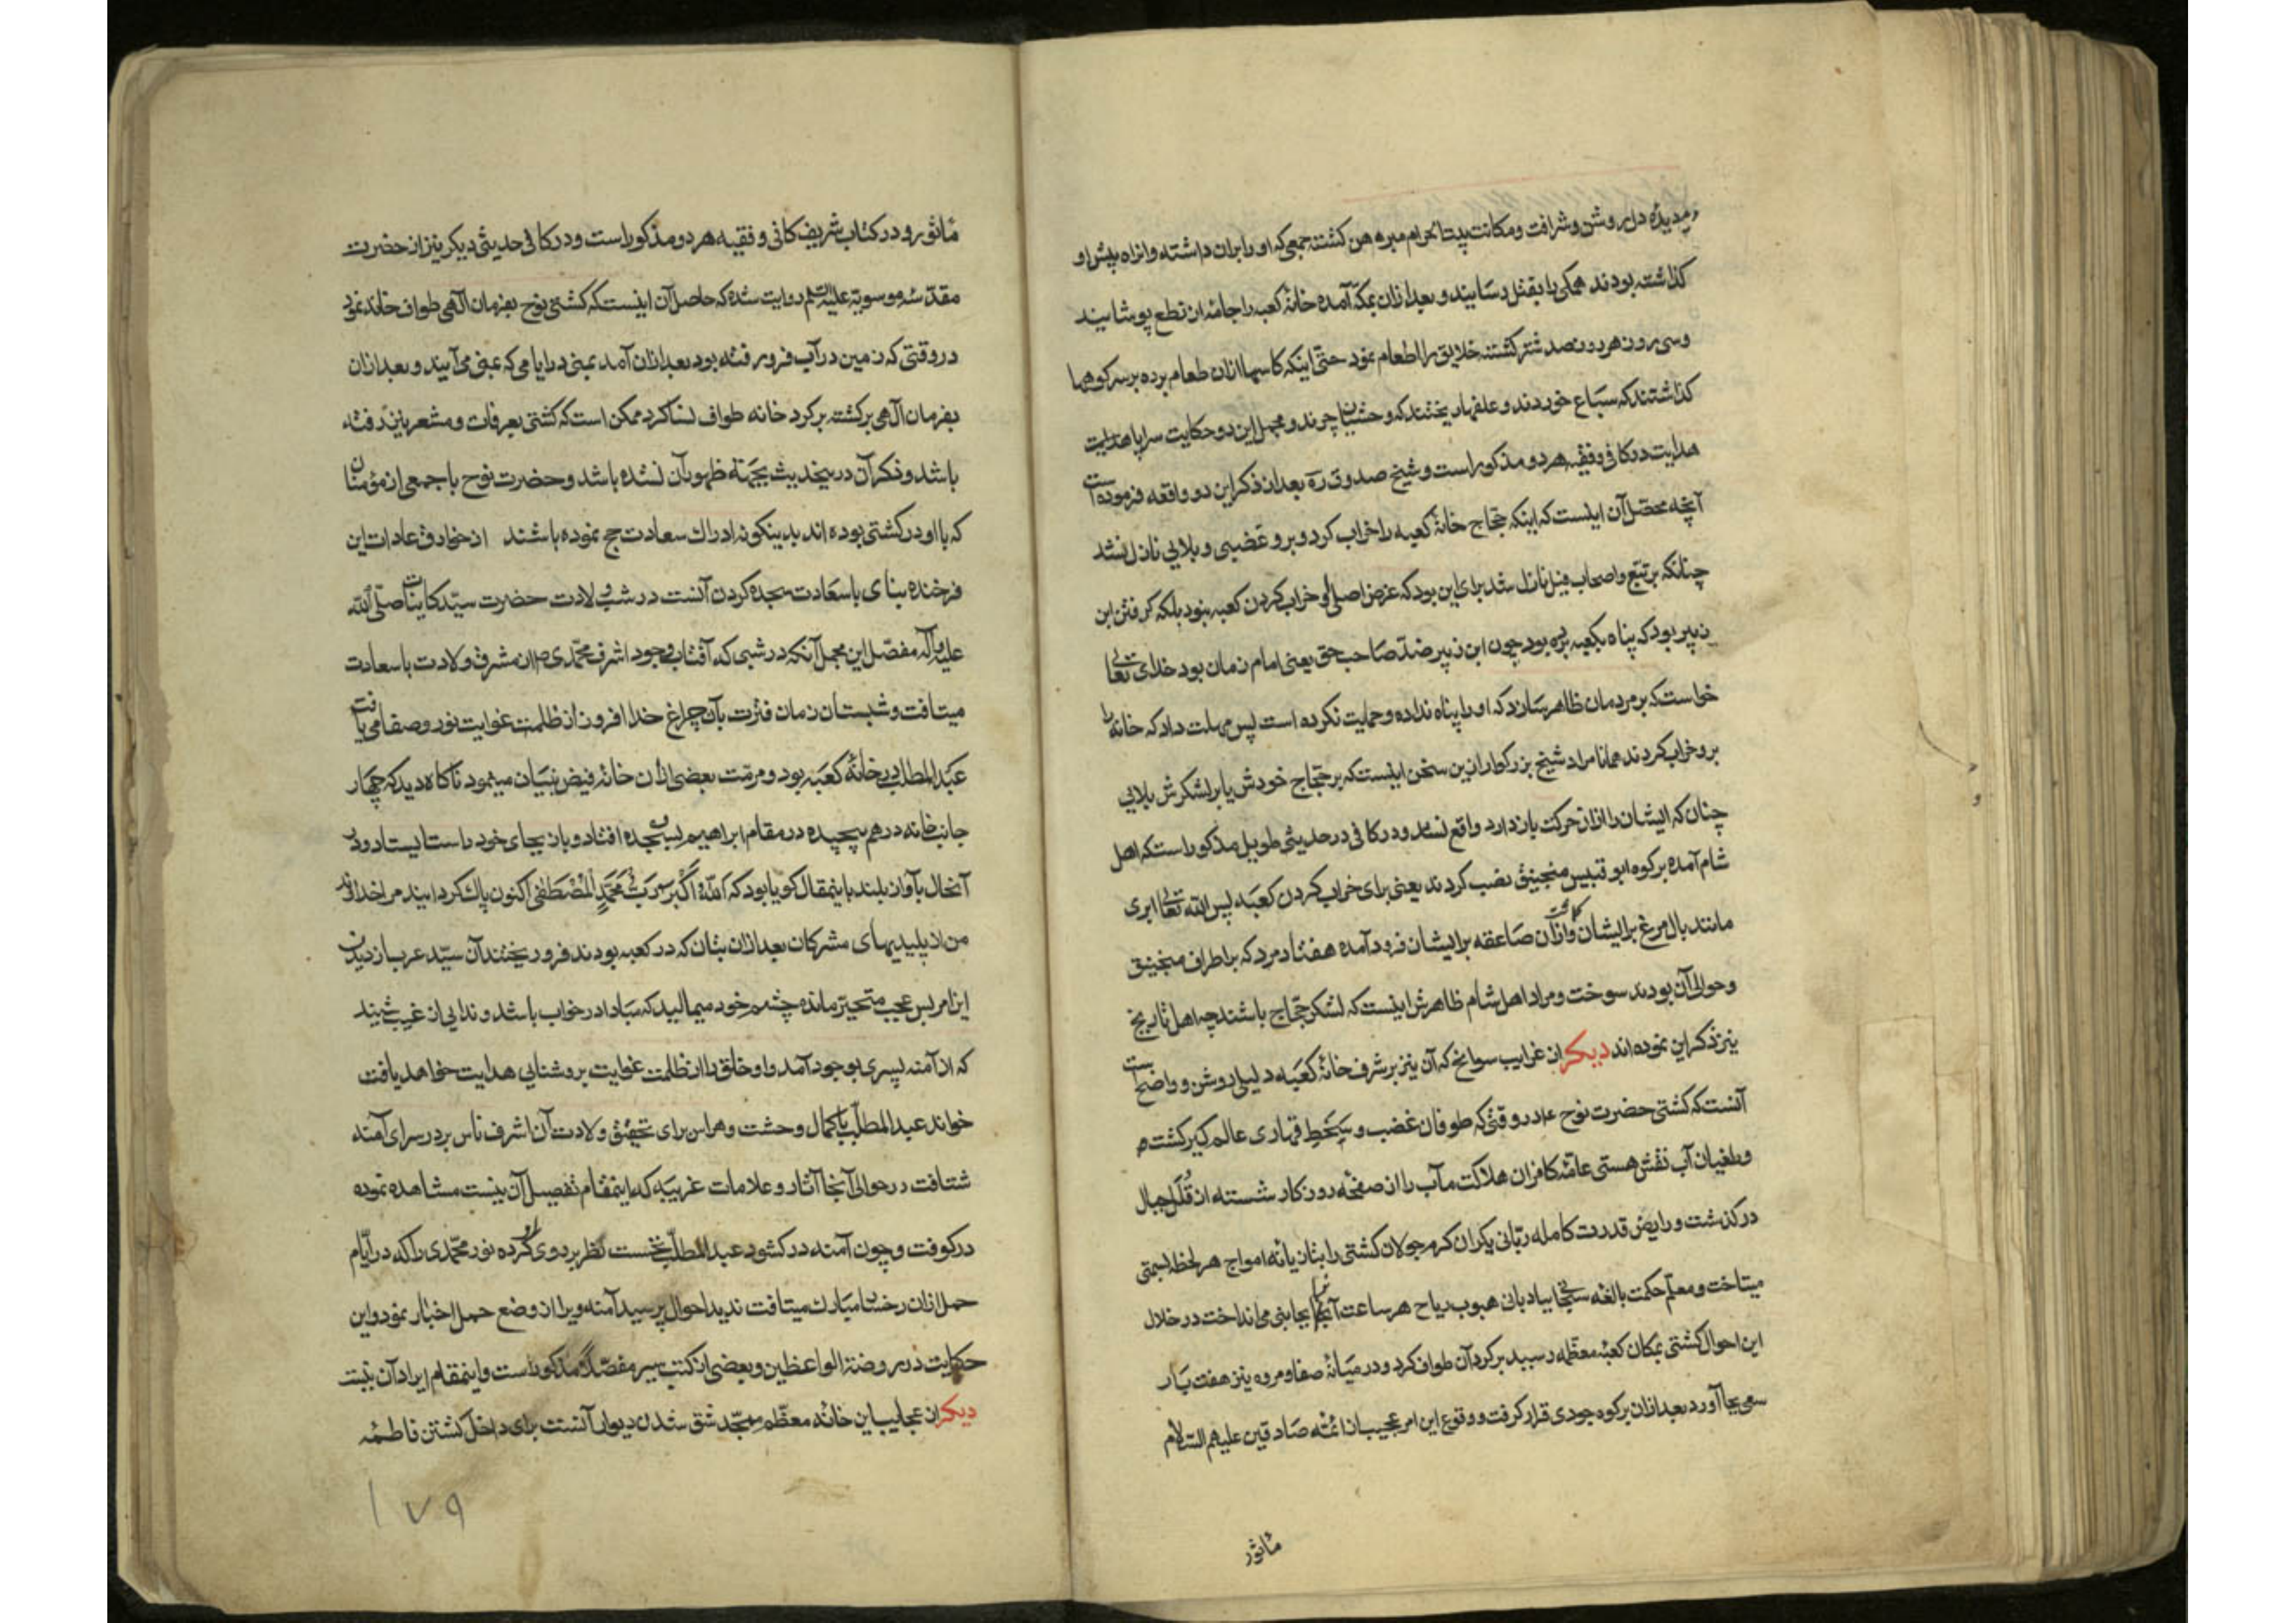 دیده دل روشن و شرافت و مکانت بیت الحرام مبرهن کشته جمعی که او را بران داشته و از راه پیش او
کذاشته بودند همکی را بقتل رسانیدند و بعد ازان بمکه آمده خانهٔ کعبه را جامه از نطع پوشانید
و سی روز هر روز صد شتر کشته خلایق را اطعام نمود حتی اینکه کاسها ازان طعام برده بر سر کوهها
کذاشتند که سباع خوردند و علفها ریختند که وحشیان چرند و مجمل این دو حکایت سراپا هدایت
هدایت در کافی و فقیه هر دو مذکور است و شیخ صدوق ره بعد از ذکر این دو واقعه فرموده است
آنچه محصل آن اینست که اینکه حجاج خانهٔ کعبه را خراب کرد و برو غضبی و بلایی نازل نشد
چنانکه بر تبع و اصحاب فیل نازل شد برای این بود که غرض اصلی او خراب کردن کعبه نبود بلکه کرفتن ابن
زبیر بود که پناه بکعبه برده بود چون ابن زبیر ضد صاحب حق یعنی امام زمان بود خدای تعالی
خواست که بر مردمان ظاهر سازد که او را پناه نداده و حمایت نکرده است پس مهلت داد که خانه را
برو خراب کردند همانا مراد شیخ بزرکوار ازین سخن اینست که بر حجاج خودش یا بر لشکرش بلایی
چنان که ایشان را ازان حرکت باز دارد واقع نشد و در کافی در حدیثی طویل مذکور است که اهل
شام آمده بر کوه ابو قبیس منجنیق نصب کردند یعنی برای خراب کردن کعبه پس الله تعالی ابری
مانند بال مرغ بر ایشان کماشت و ازان صاعقه بر ایشان فرود آمده هفتاد مرد که بر اطراف منجنیق
و حوالی آن بودند سوخت و مراد اهل شام ظاهرش اینست که لشکر حجاج باشند چه اهل تاریخ
نیز ذکر این نموده اند دیکر از غرایب سوانح که آن نیز بر شرف خانهٔ کعبه دلیلی روشن و واضح است
آنست که کشتی حضرت نوح ع در وقتی که طوفان غضب و سخط قهاری عالم کیر کشته
و طغیان آب نقش هستی عامهٔ کافران هلاکت مآب را از صفحه روزکار شسته از قلل جبال
در کذشت و رایض قدرت کامله ربانی یکران کرم جولان کشتی را بتازیانه امواج هر لحظه بسمتی
میتاخت و معلم حکمت بالغه سبحانی ببادبانی هبوب ریاح هر ساعت آنرا بجانبی می انداخت در خلال
این احوال کشتی بمکان کعبهٔ معظمه رسید بر کرد آن طواف کرد و در میانهٔ صفا و مروه نیز هفت بار
سعی بجا آورد بعد ازان بر کوه جودی قرار کرفت و وقوع این امر عجیب از ائمه صادقین علیهم السلام
ماثور
ماثور و در کتاب شریف کافی و فقیه هر دو مذکور است و در کافی حدیثی دیکر نیز از حضرت
مقدسه موسویه علیه السلم روایت شده که حاصل آن اینست که کشتی نوح بفرمان الهی طواف خانه نمود
در وقتی که زمین در آب فرو رفته بود بعد ازان آمد بمنی در ایامی که بمنی می آیند و بعد ازان
بفرمان الهی برکشته بر کرد خانه طواف نسا کرد ممکن است که کشتی بعرفات و مشعر نیز رفته
باشد و ذکر آن درین حدیث بجهة ظهور آن نشده باشد و حضرت نوح با جمعی از مؤمنان
که با او در کشتی بوده اند بدینکونه ادراك سعادت حج نموده باشند از خوارق عادات این
فرخنده بنای با سعادت سجده کردن آنست در شب ولادت حضرت سید کاینات صلی الله
علیه و آله مفصل این مجمل آنکه در شبی که آفتاب وجود اشرف محمدی ص از مشرق ولادت با سعادت
میتافت و شبستان زمان فترت بآن چراغ خدا افروز از ظلمت غوایت نور و صفا می یافت
عبد المطلب در خانهٔ کعبه بود و مرمت بعضی ازان خانهٔ فیض بنیان مینمود ناکاه دید که چهار
جانب خانه در هم پیچیده در مقام ابراهیم بسجده افتاد و باز بجای خود راست ایستاد و در
آنحال بآواز بلند باینمقال کویا بود که الله اکبر رب محمد المصطفی اکنون پاك کردانید مرا خداوند
من از پلیدیهای مشرکان بعد ازان بتان که در کعبه بودند فرو ریختند آن سید عرب از دیدن
این امر بس عجیب متحیر مانده چشم خود میمالید که مبادا در خواب باشد و ندایی از غیب شنید
که از آمنه پسری بوجود آمد و او خلق را از ظلمت غوایت بروشنایی هدایت خواهد یافت
خواند عبد المطلب با کمال وحشت و هراس برای تحقیق ولادت آن اشرف ناس بر در سرای آمنه
شتافت در حوالی آنجا آثار و علامات غریبه که اینمقام تفصیل آن نیست مشاهده نموده
در کوفت و چون آمنه در کشود عبد المطلب نخست نظر بر روی او کرده نور محمدی را که در ایام
حمل ازان رخسار مبارك میتافت ندید احوال پرسید آمنه ویرا از وضع حمل اخبار نمود و این
حکایت در روضة الواعظین و بعضی از کتب سیر مفصلا مذکور است و اینمقام ایراد آن نیست
دیکر از عجایب این خانه معظم مسجد شق شدن دیوار آنست برای داخل کشتن فاطمه
۱۷۹